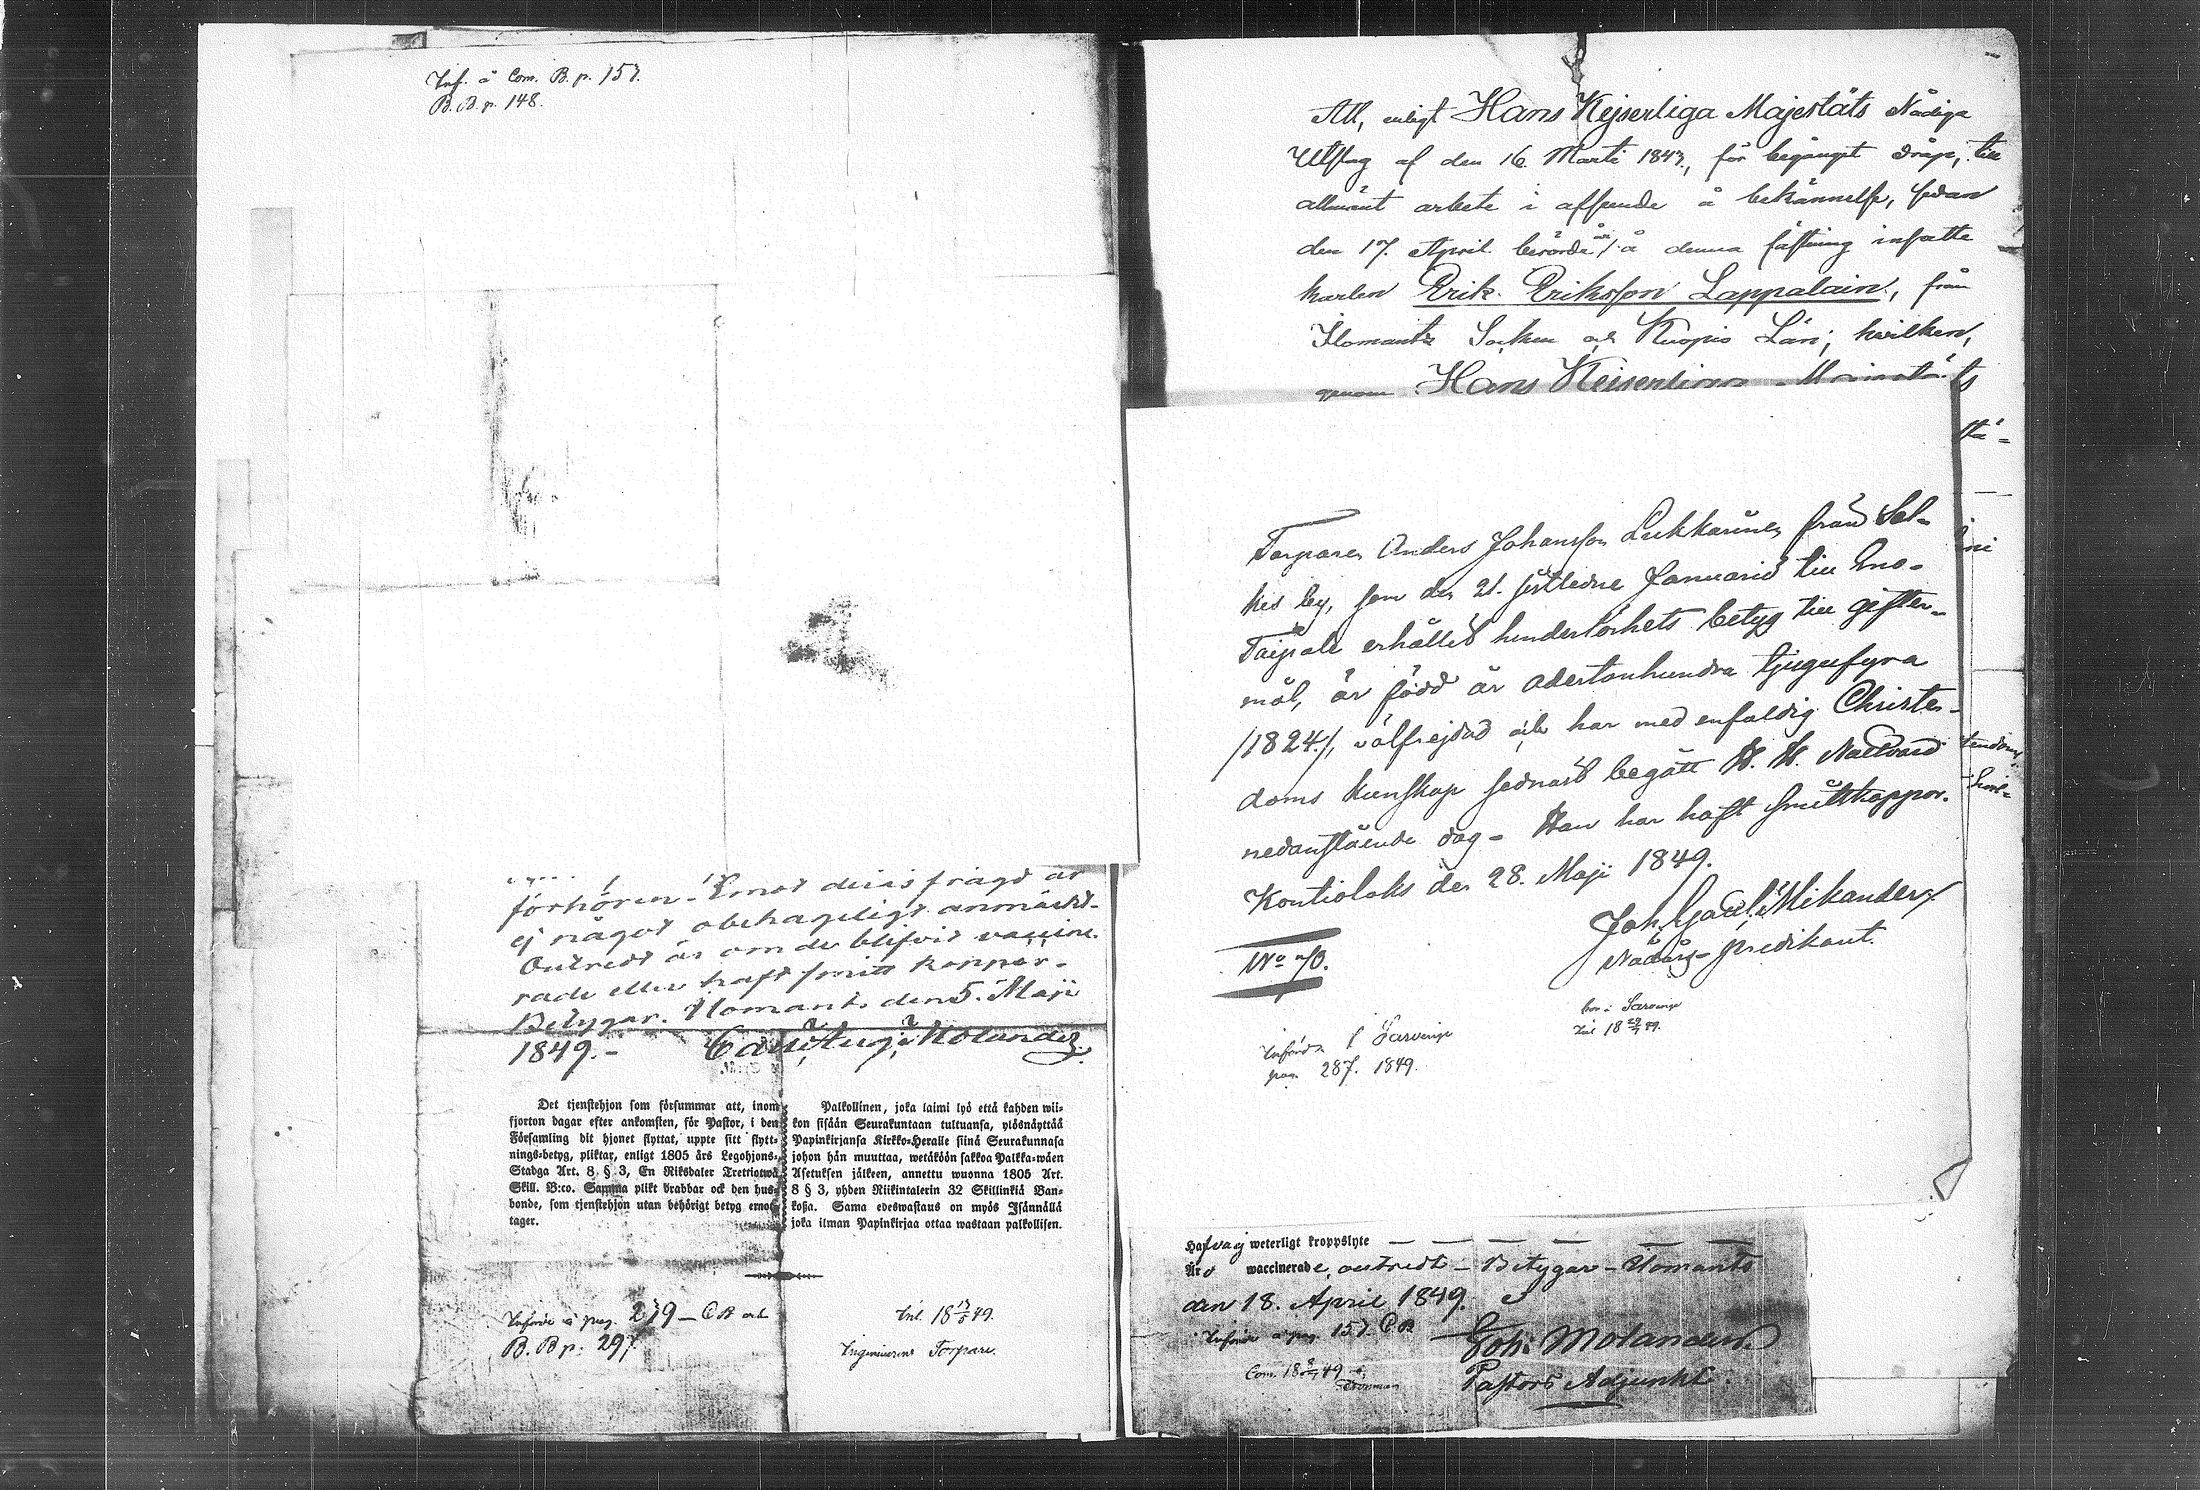 Inf. å Com. B. p. 157.
B. B. p. 148.
förhören. Emot deras frägd är
ej något obehageligt anmärkt.
Outredt är om de blifvit vaccine-
rade eller haft smitt koppor.
Betygar. Ilomants den 5. Maji
1849.- Carl Aug. Molander
Det tjenstehjon som försummar att, inom
fjorton dagar efter ankomsten, för Pastor, i den
Församling dit hjonet flyttat, uppte sitt flytt-
nings-betyg, pliktar, enligt 1805 års Legohjons-
Stadga Art. 8 § 3, En Riksdaler Trettiotwå
Skill. B:co. Samma plikt drabbar ock den hus-
bonde, som tjenstehjon utan behörigt betyg emot-
tager.
Palkollinen, joka laimi lyö että kahden wii-
kon sisään Seurakuntaan tultuansa, ylösnäyttää
Papinkirjansa Kirkko-Heralle siinä Seurakunnasa
johon hän muuttaa, wetäköön sakkoa Palkka-wäen
Asetuksen jälkeen, annettu wuonna 1805 Art.
8 § 3, yhden Riikintalerin 32 Skillinkiä Ban-
koßa. Sama edeswastaus on myös Isännällä
joka ilman Papinkirjaa ottaa wastaan palkollisen.
Införde å pag. 279 - C B och
B. B p. 297.
Inl. 18 13/5 49.
Ingeniurens Torpare.
Att, enligt Hans Kejserliga Majestäts Nådiga
Utslag af den 16 Martii 1843, för begånget dråp, till
allmänt arbete i afseende å bekännelse, sedan
den 17. April berörde år å denna fästning insatte
karlen Erik Eriksson Lappalain, från
Ilomants Socken och Kuopio Län; hvilken,
genom Hans Kejserliga Majestäts
stä-
Torparen Anders Johansson Lukkarinen från Sel-
kis by, som den 21. sistledne Januarii till Eno-
Taipale erhållit hinderlöshets betyg till gifter-
mål, är född år adertonhundra tjugufyra
/1824./, välfrejdad och har med enfaldig Christen-
doms kunskap sednast begått H. H. Nattvard
nedanstående dag - Han har haft smittkoppor.
Kontiolaks den 28. Maji 1849.
Joh. Gab. Mikander
Nådårs-predikant.
No 70.
bor i Sarvinge
Införd i Sarvinge
pag. 287. 1849.
tendoms
Hafva ej weterligt kroppslyte
Äro waccinerade, outredt - Betygar - Ilomants
den 18. April 1849.
Införde å pag. 157. C B
Joh: Molander
Pastors Adjunkt.